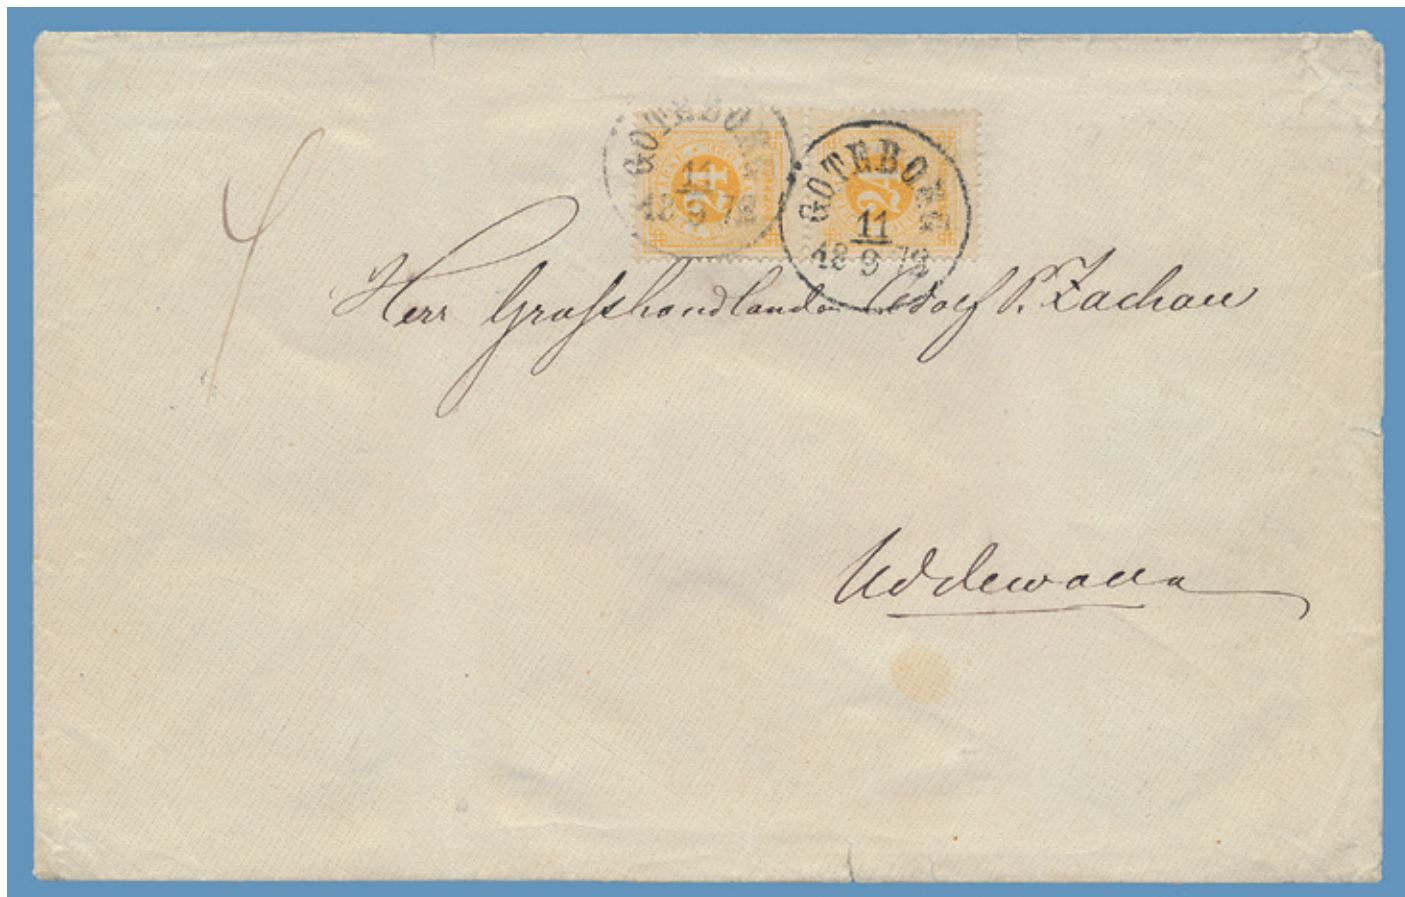 GÖTEBORG
11
18 9 78
24
GÖTEBORG
11
18 9 78
24
Herr Grosshandlanden Adolf P. Zachau
Uddewalla